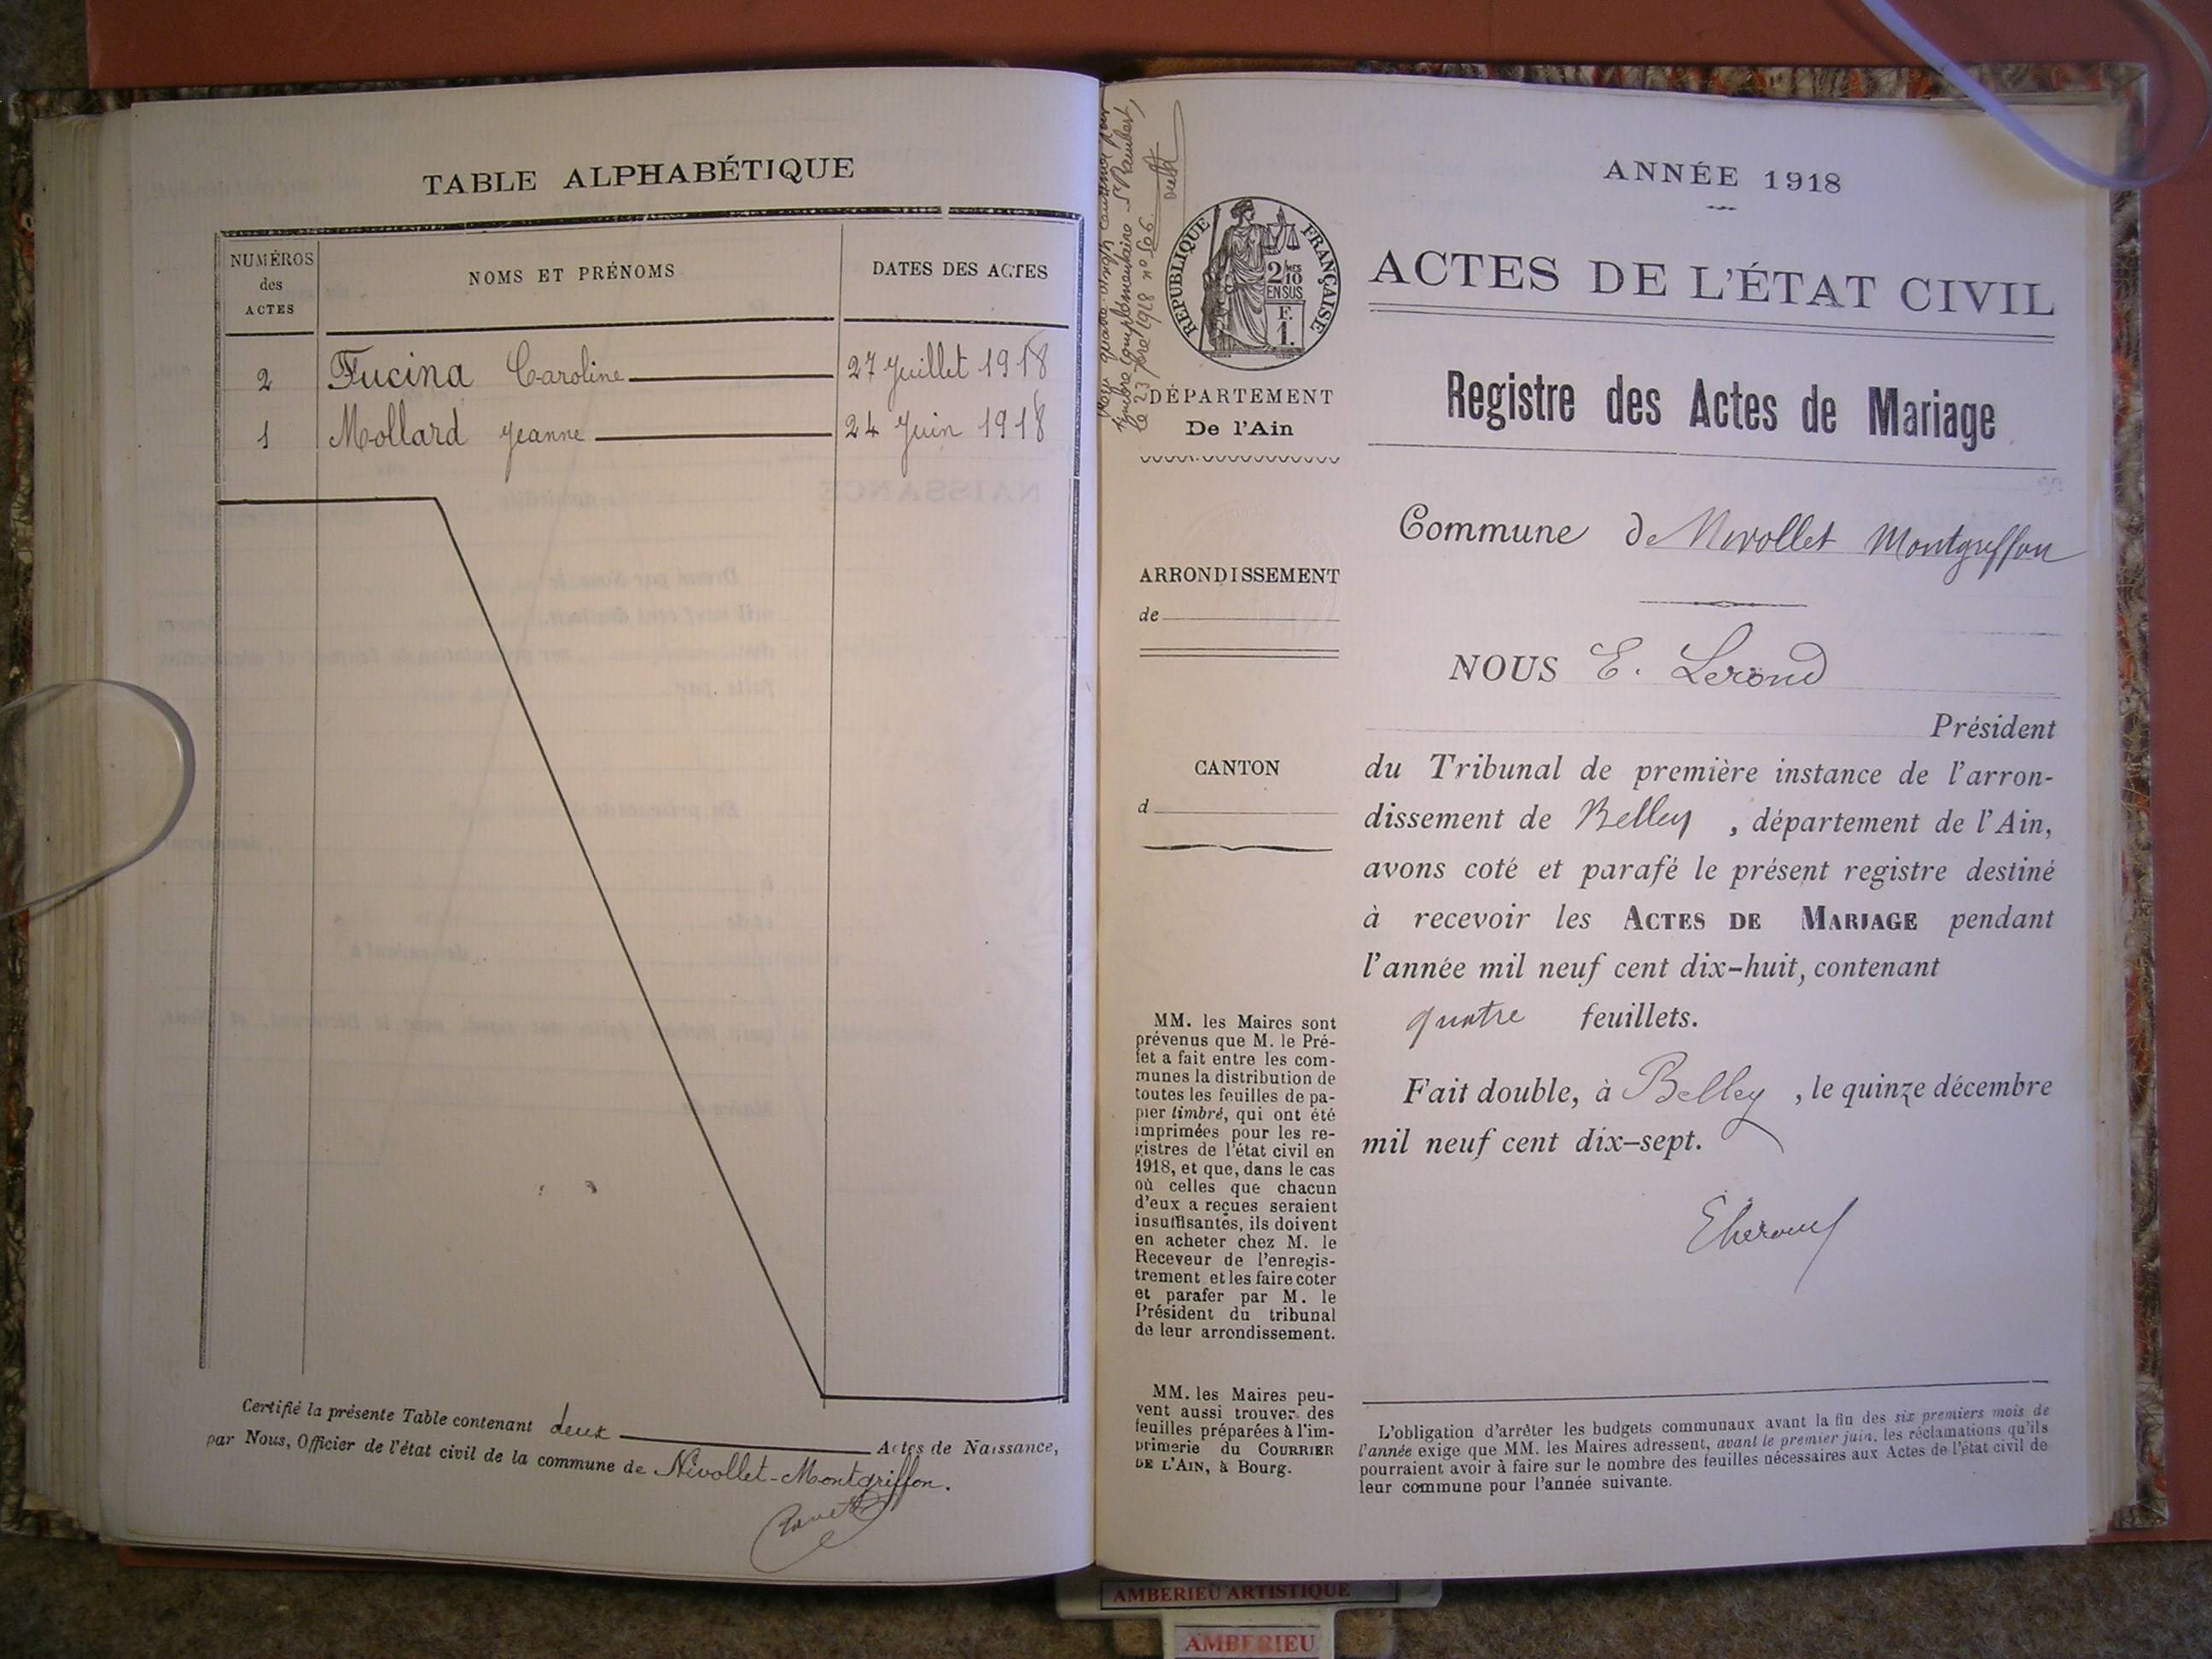 TABLE ALPHABÉTIQUE
NUMÉROS
des
ACTES
NOMS ET PRÉNOMS
DATES DES ACTES
2 Fucina Caroline 27 Juillet 1918
1 Mollard Jeanne 24 Juin 1918
Certifié la présente Table contenant deux Actes de Naissance,
par Nous, Officier de l'état civil de la commune de Nivollet-Montgriffon.
timbre complémentaire St Rambert,
le 23 1918 n° 606
RÉPUBLIQUE FRANÇAISE
2/10 EN SUS
F.
1.
DÉPARTEMENT
De l'Ain
ARRONDISSEMENT
de
CANTON
d
MM. les Maires sont
prévenus que M. le Pré-
fet a fait entre les com-
munes la distribution de
toutes les feuilles de pa-
pier timbré, qui ont été
imprimées pour les re-
gistres de l'état civil en
1918, et que, dans le cas
où celles que chacun
d'eux a reçues seraient
insuffisantes, ils doivent
en acheter chez M. le
Receveur de l'enregis-
trement et les faire coter
et parafer par M. le
Président du tribunal
de leur arrondissement.
MM. les Maires peu-
vent aussi trouver des
feuilles préparées à l'im-
primerie du COURRIER
DE L'AIN, à Bourg.
ANNÉE 1918
ACTES DE L'ÉTAT CIVIL
Registre des Actes de Mariage
Commune de Nivollet Montgriffon
NOUS E. Lerond
Président
du Tribunal de première instance de l'arron-
dissement de Belley, département de l'Ain,
avons coté et parafé le présent registre destiné
à recevoir les ACTES DE MARIAGE pendant
l'année mil neuf cent dix-huit, contenant
quatre feuillets.
Fait double, à Belley, le quinze décembre
mil neuf cent dix-sept.
L'obligation d'arrêter les budgets communaux avant la fin des six premiers mois de
l'année exige que MM. les Maires adressent, avant le premier juin, les réclamations qu'ils
pourraient avoir à faire sur le nombre des feuilles nécessaires aux Actes de l'état civil de
leur commune pour l'année suivante.
AMBERIEU ARTISTIQUE
AMBERIEU